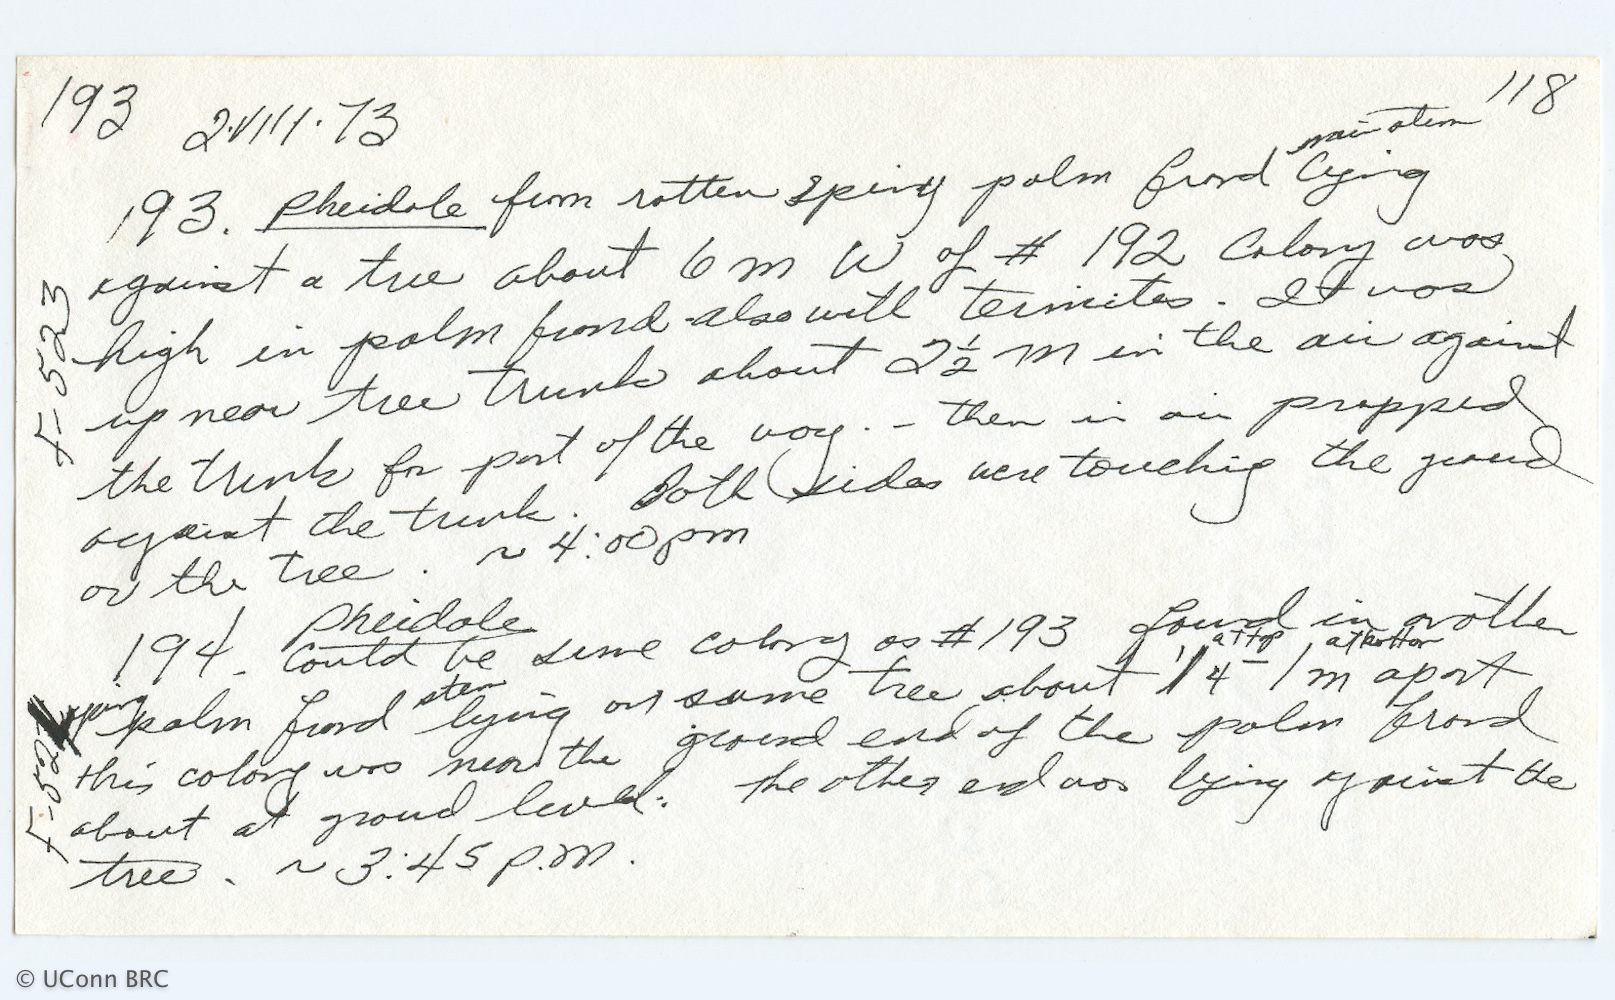 193
2.VIII.73
118
main stem
193. Pheidole from rotten spiny palm frond lying
against a tree about 6 m W of # 192 Colony was
high in palm frond - also with termites. It was
up near tree trunk about 2½ m in the air against
the trunk for part of the way. - then in air propped
against the trunk. Both sides were touching the ground
or the tree. ~ 4:00 pm
F-523
Pheidole
194. Could be same colony as # 193 found in another
at top at bottom
spiny palm frond stem lying on same tree about 1/4 - 1 m apart
this colony was near the ground end of the palm frond
about at ground level. The other end was lying against the
tree. ~ 3:45 p.m.
© UConn BRC